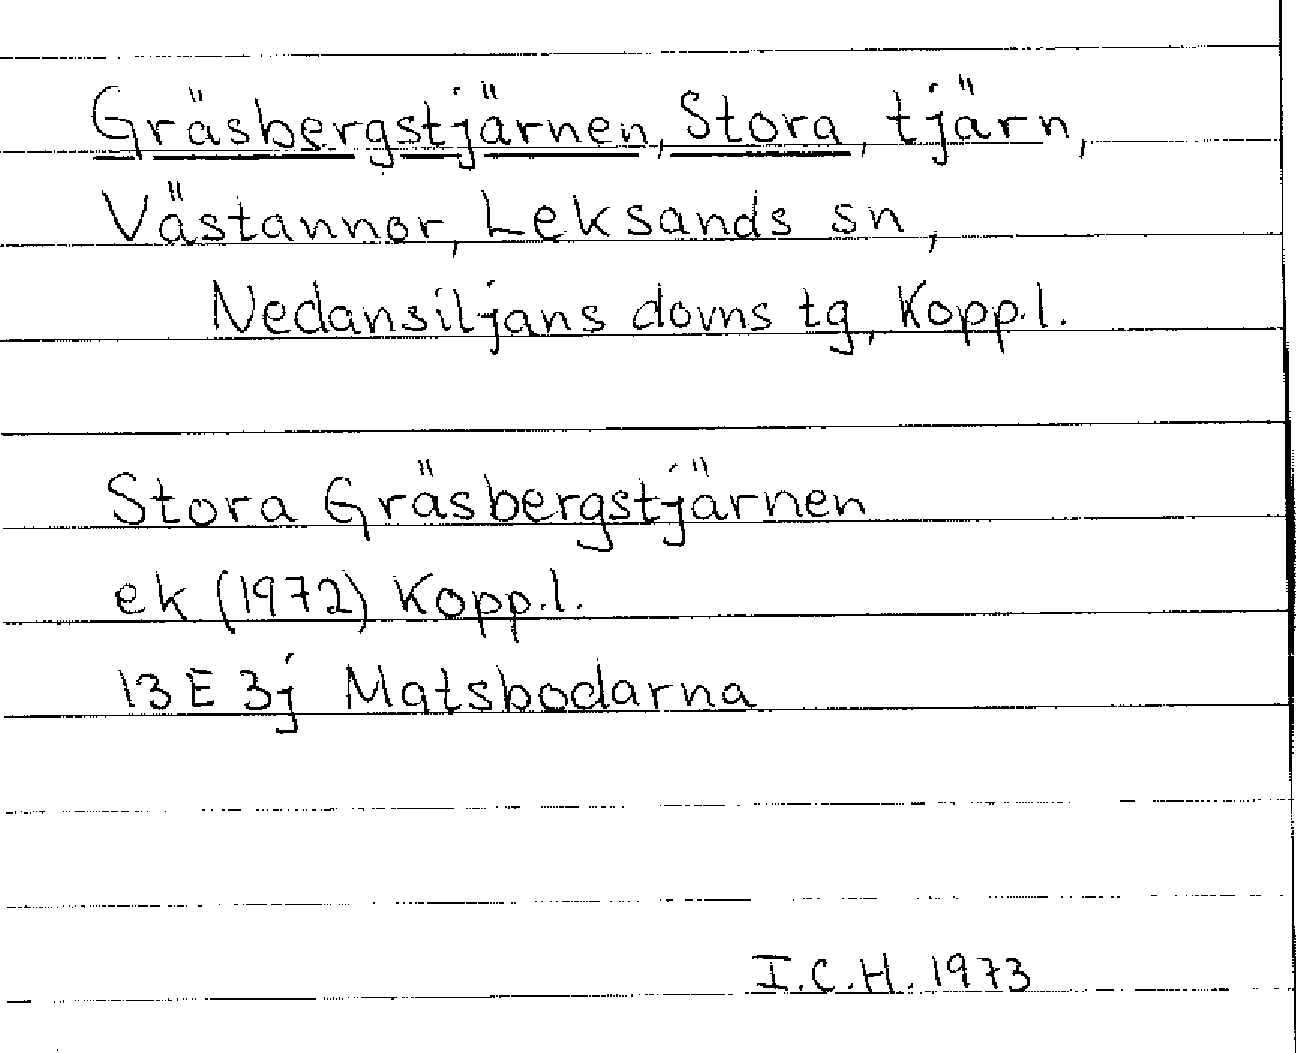 Gräsbergstjärnen, Stora, tjärn,
Västannor, Leksands sn,
Nedansiljans dovns tg, Kopp.l.
Stora Gräsbergstjärnen
ek (1972) Kopp.l.
13 E 3j Matsbodarna
I.C.H. 1973